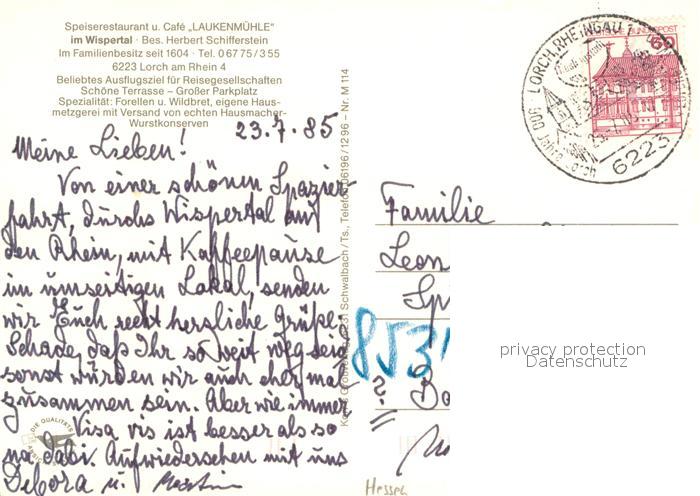 Speiserestaurant u. Café „LAUKENMÜHLE"
im Wispertal · Bes. Herbert Schifferstein
Im Familienbesitz seit 1604 · Tel. 0 67 75 / 3 55
6223 Lorch am Rhein 4
Beliebtes Ausflugsziel für Reisegesellschaften
Schöne Terrasse – Großer Parkplatz
Spezialität: Forellen u. Wildbret, eigene Haus-
metzgerei mit Versand von echten Hausmacher-
Wurstkonserven
23.7.85
Meine Lieben!
Von einer schönen Spazier-
fahrt, durchs Wispertal auf
den Rhein, mit Kaffeepause
im umseitigen Lokal, senden
wir Euch recht herzliche Grüße.
Schade, daß Ihr so weit weg seid
sonst würden wir auch eher mal
zusammen sein. Aber wie immer
Visa vis ist besser als so
na dabi. Aufwiedersehen mit uns
Debora u.
Schwalbach/Ts., Telefon 06196/1296 – Nr. M 114
DIE QUALITÄTS
LORCH, RHEINGAU 1
6223
60
Familie
Leon
Sp
853
? Bo
privacy protection
Datenschutz
Hessen